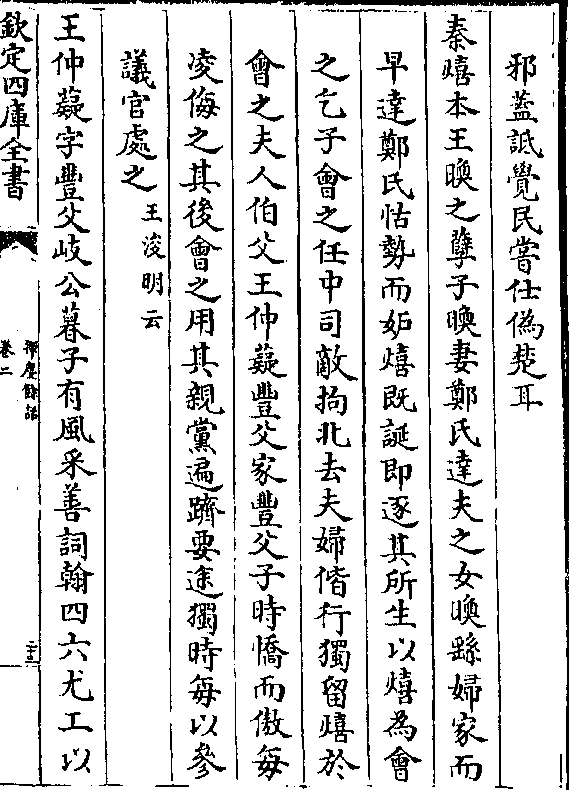 邪蓋詆覺民嘗仕僞楚耳
秦熺本王㬇之孽子㬇妻鄭氏達夫之女㬇繇婦家而
早達鄭氏怙勢而妬熺既誕即逐其所生以熺為會
之乞子會之任中司敵拘北去夫婦偕行獨留熺於
會之夫人伯父王仲薿豐父家豐父子時憍而傲每
凌侮之其後會之用其親黨遍躋要途獨時每以參
議官處之王浚明云
王仲薿字豐父岐公暮子有風采善詞翰四六尤工以
欽定四庫全書
揮麈餘話
卷二
二十三